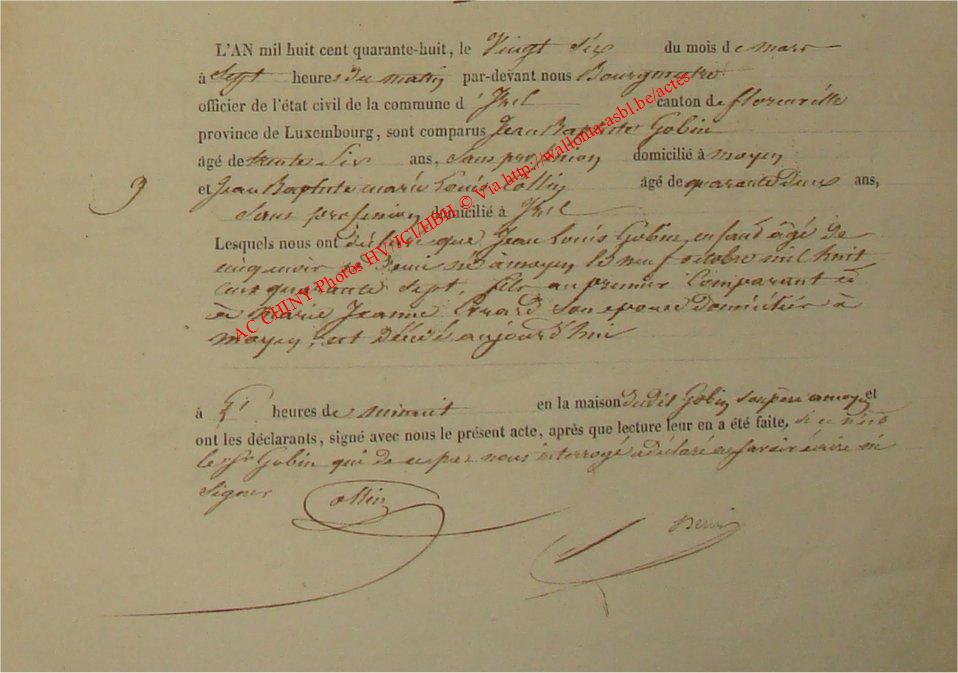 L'AN mil huit cent quarante-huit, le Vingt Six du mois de mars
à Sept heures du matin par-devant nous Bourgmestre
officier de l'état civil de la commune d' Izel canton de florenville
province de Luxembourg, sont comparus Jean Baptiste Gobin
âgé de trente Six ans, sans profession domicilié à moyen
9
et Jean Baptiste marie Louis Collin âgé de quarante Deux ans,
Sans profession domicilié à Izel
Lesquels nous ont déclaré que Jean Louis Gobin, enfant âgé de
cinq mois et Demi né à moyen le neuf octobre mil huit
cent quarante Sept, fils au premier Comparant et
à Marie Jeanne Evrard son épouse Domiciliés à
moyen, est Décédé aujourd'hui
à heures de minuit en la maison dudit Gobin Son père a moyen et
ont les déclarants, signé avec nous le présent acte, après que lecture leur en a été faite, si ce n'est
le Gobin qui de ce par nous interrogé a déclaré ne savoir écrire ni
Signer
Collin
AC CHINY Photos HV/JCI/HBH © Via http://wallonia-asbl.be/actes